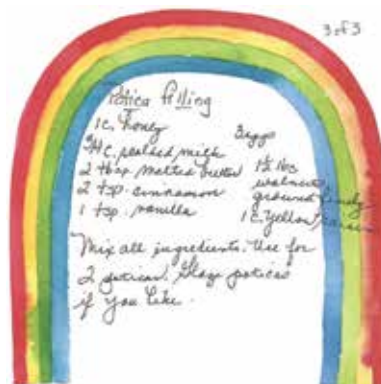 3 of 3
Potica Filling
1 c. honey
3/4 c. scalded milk
2 tbsp. melted butter
2 tsp. cinnamon
1 tsp. vanilla
3 eggs
1½ lbs
walnuts
ground finely
1 C. Yellow raisins
Mix all ingredients. Use for
2 poticas. Glaze poticas
if you like.